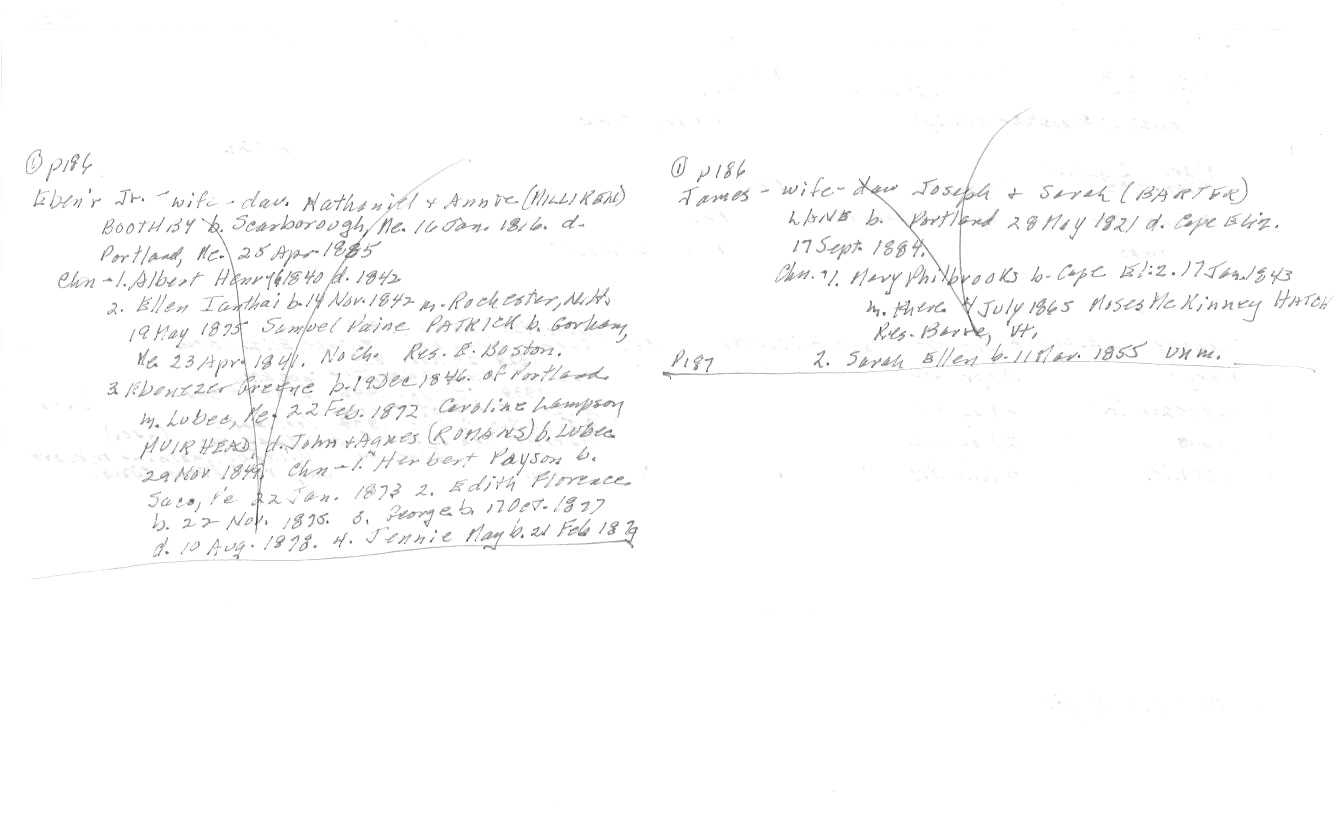 ① p186
Eben'r Jr. - wife - dau. Nathaniel + Annie (MILLIKEN)
BOOTHBY b. Scarborough, Me. 16 Jan. 1816. d.
Portland, Me. 25 Apr 1885
Chn - 1. Albert Henry b 1840 d. 1842
2. Ellen Ianthai b. 14 Nov. 1842 m. Rochester, N.H.
19 May 1875 Samuel Paine PATRICK b. Gorham,
Me 23 Apr. 1841. No Ch. Res. E. Boston.
3. Ebenezer Greene b. 19 Dec 1846. of Portland
m. Lubec, Me. 22 Feb. 1872 Caroline Lampson
MUIRHEAD, d. John + Agnes (ROMANS) b. Lubec
29 Nov 1849. Chn - 1. Herbert Payson b.
Saco, Me 22 Jan. 1873 2. Edith Florence
b. 22 Nov. 1875. 3. George b. 17 Oct. 1877
d. 10 Aug. 1878. 4. Jennie May b. 21 Feb 1879
① p186
James - wife - dau Joseph + Sarah (BARTER)
LANE b. Portland 28 May 1821 d. Cape Eliz.
17 Sept. 1884.
Chn. 1. Mary Philbrooks b. Cape Eliz. 17 Jan. 1843
m. there 4 July 1865 Moses McKinney HATCH
Res. Barre, Vt.
P187 2. Sarah Ellen b. 11 Mar. 1855 unm.